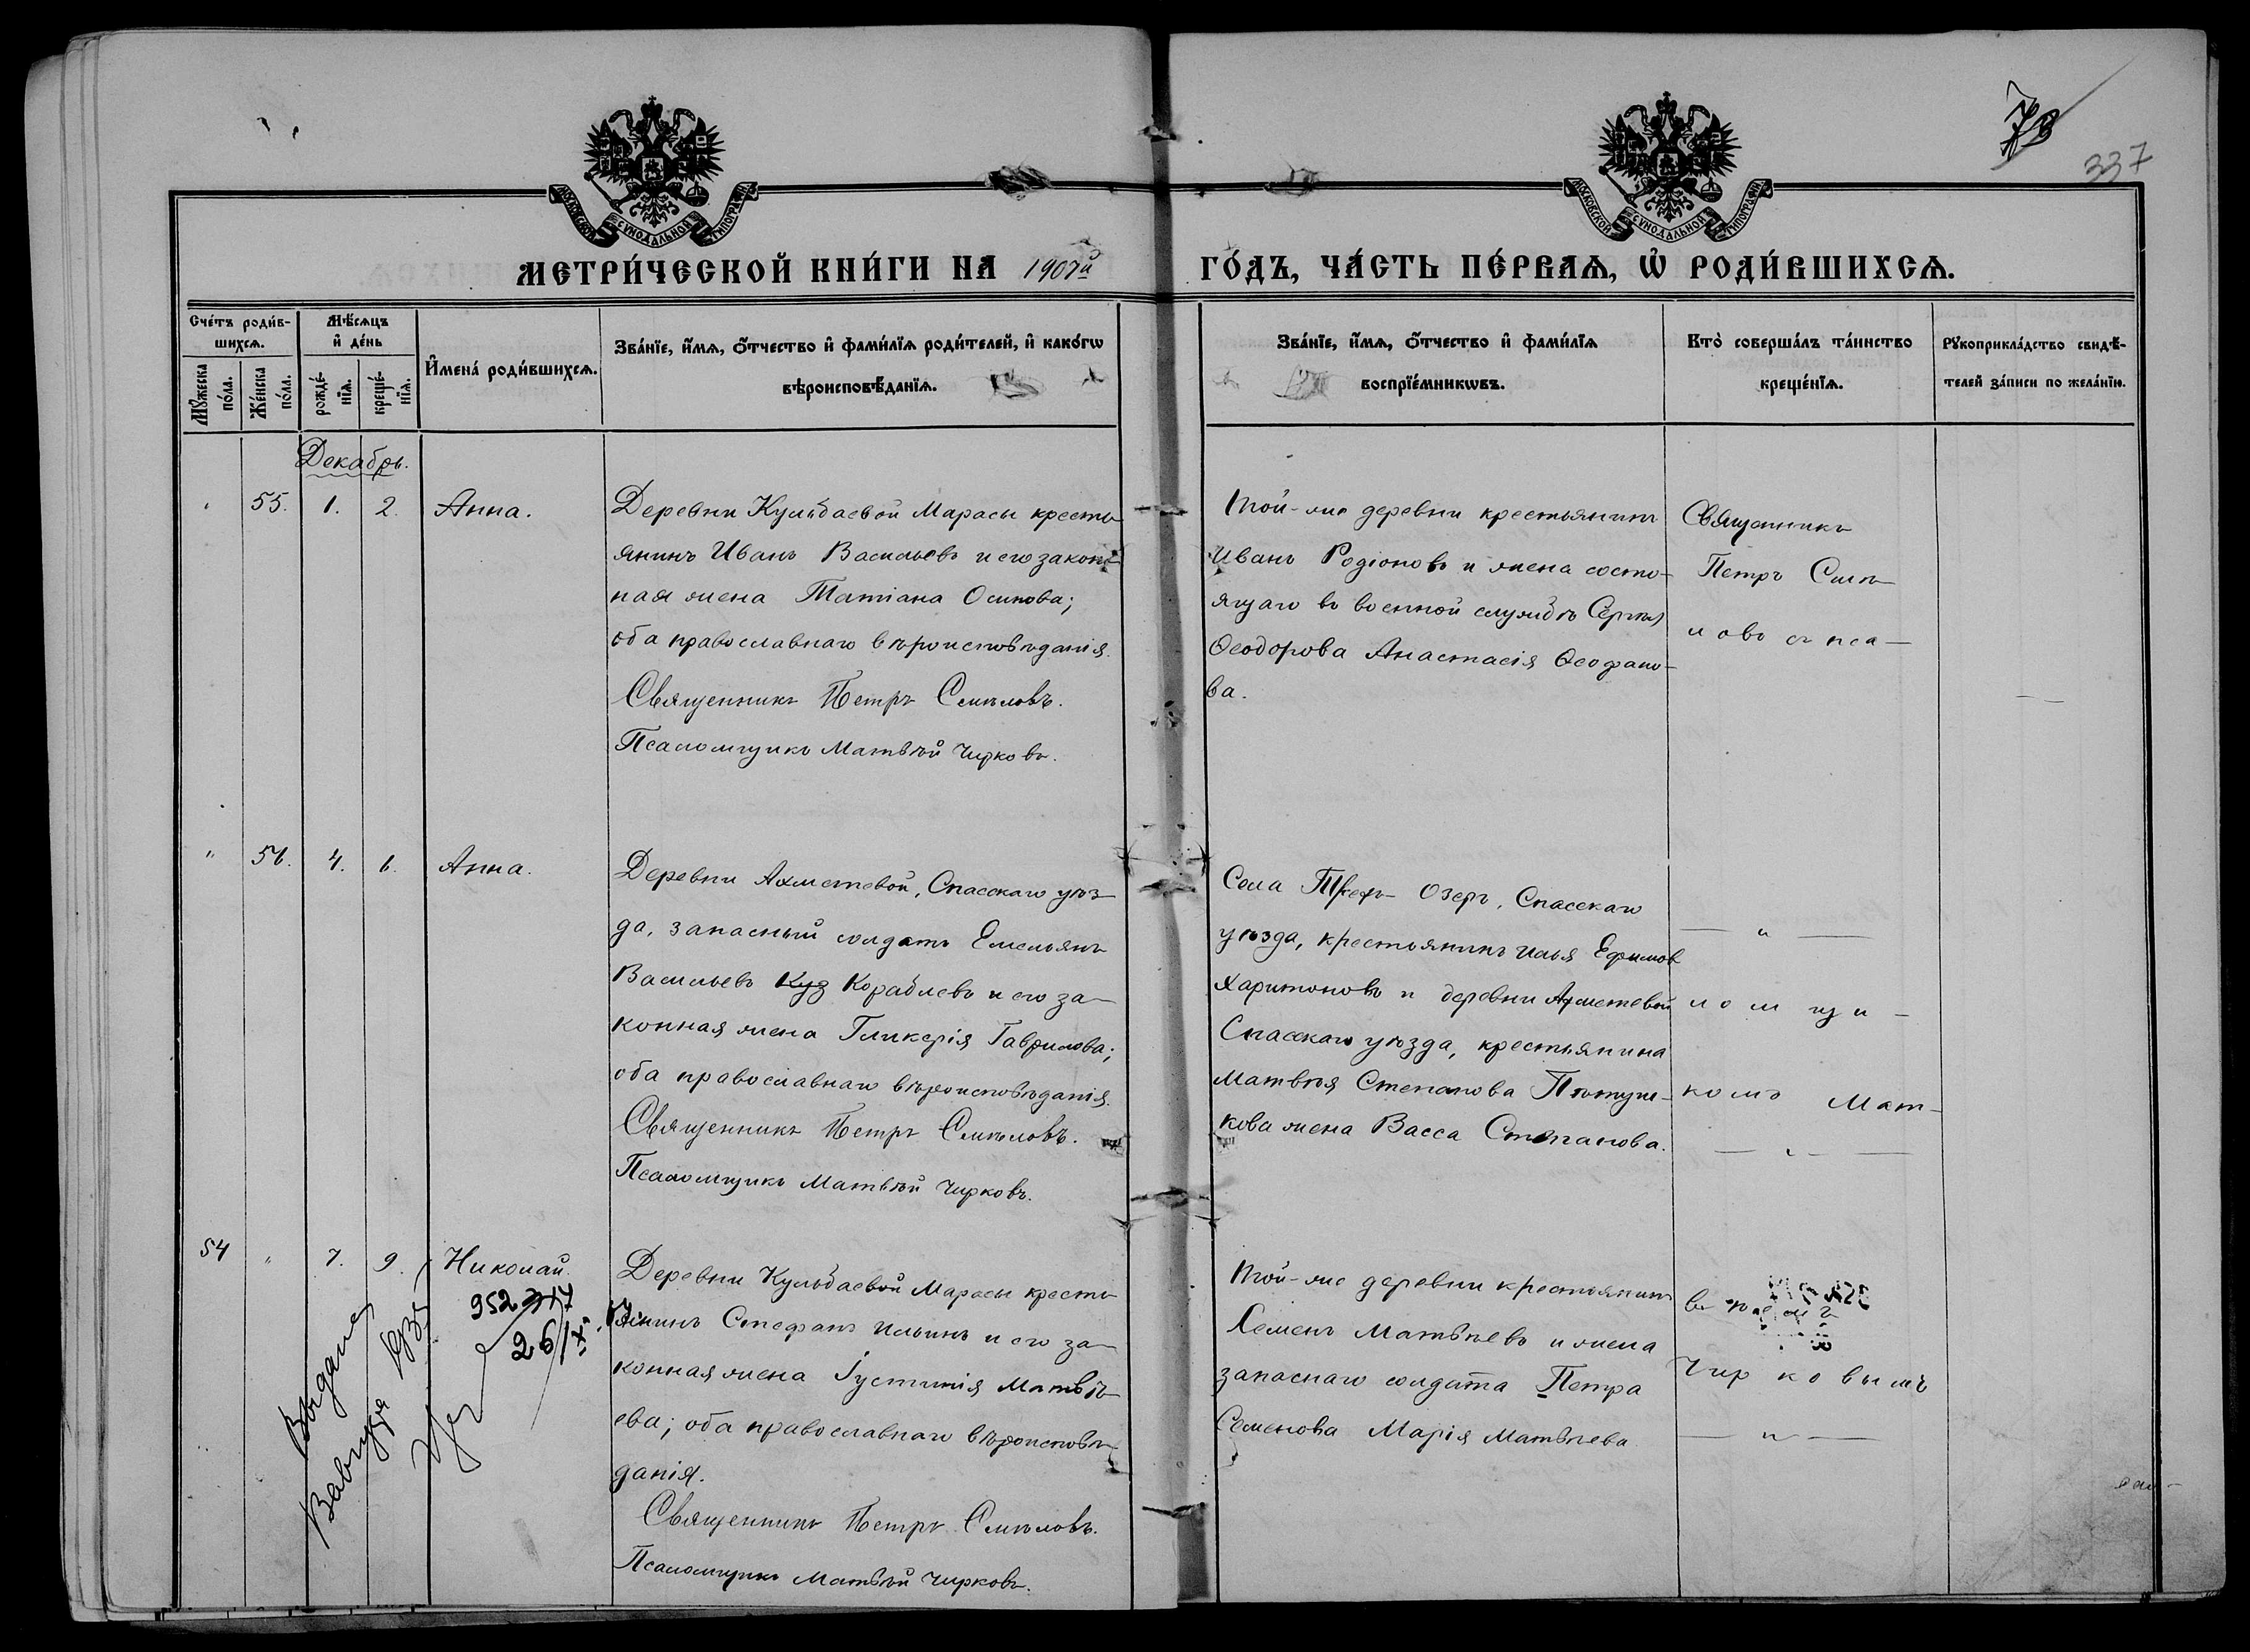 78
337
МОСКОВСКОЙ СѴНОДАЛЬНОЙ ТИПОГРАФІИ
МОСКОВСКОЙ СѴНОДАЛЬНОЙ ТИПОГРАФІИ
МЕТРИ́ЧЕСКОЙ КНИ́ГИ НА 1907й ГО́ДЪ, ЧА́СТЬ ПЕ́РВАѦ, Ѡ РОДИ́ВШИХСѦ.
Сче́тъ роди́в-
шихсѧ.
Мꙋ́жеска по́ла.
Же́нска по́ла.
Мѣ́сѧцъ
и҆ де́нь
рожде́-
нїѧ.
креще́-
нїѧ.
И҆мена̀ роди́вшихсѧ.
Зва́нїе, и҆́мѧ, ѻ҆́тчество и҆ фами́лїѧ роди́телей, и҆ како́гѡ
вѣроисповѣ́данїѧ.
Зва́нїе, и҆́мѧ, ѻ҆́тчество и҆ фами́лїѧ
воспрїе́мникѡвъ.
Кто̀ соверша́лъ та́инство
креще́нїѧ.
Рꙋкоприкла́дство свидѣ́-
телей за́писи по жела́нїю.
Декабрь.
" 55. 1. 2. Анна.
Деревни Кульбаевой Марасы кресть-
янинъ Иванъ Васильевъ и его закон-
ная жена Татіана Осипова;
оба православнаго вѣроисповѣданія.
Священникъ Петръ Смѣловъ.
Псаломщикъ Матвѣй Чирковъ.
Той-же деревни крестьянинъ
Иванъ Родіоновъ и жена состо-
ящаго въ военной службѣ Сергѣя
Ѳеодорова Анастасія Ѳеофано-
ва.
Священникъ
Петръ Смѣ-
ловъ съ пса-
" 56. 4. 6. Анна.
Деревни Ахметевой, Спасскаго уѣз-
да, запасный солдатъ Емельянъ
Васильевъ Куз Кораблевъ и его за-
конная жена Гликерія Гаврилова;
оба православнаго вѣроисповѣданія.
Священникъ Петръ Смѣловъ.
Псаломщикъ Матвѣй Чирковъ.
Села Трехъ-Озеръ, Спасскаго
уѣзда, крестьянинъ Илья Ефимовъ
Харитоновъ и деревни Ахметевой
Спасскаго уѣзда, крестьянина
Матвѣя Степанова Пѣтуш-
кова жена Васса Степанова.
— " —
ломщи-
комъ Мат-
— " —
54 " 7. 9. Николай.
952
26/X
Выдана
Деревни Кульбаевой Марасы кресть-
янинъ Стефанъ Ильинъ и его за-
конная жена Іустинія Матвѣ-
ева; оба православнаго вѣроисповѣ-
данія.
Священникъ Петръ Смѣловъ.
Псаломщикъ Матвѣй Чирковъ.
Той-же деревни крестьянинъ
Семенъ Матвѣевъ и жена
запаснаго солдата Петра
Семенова Марія Матвѣева.
вѣемъ
Чирковымъ
— " —